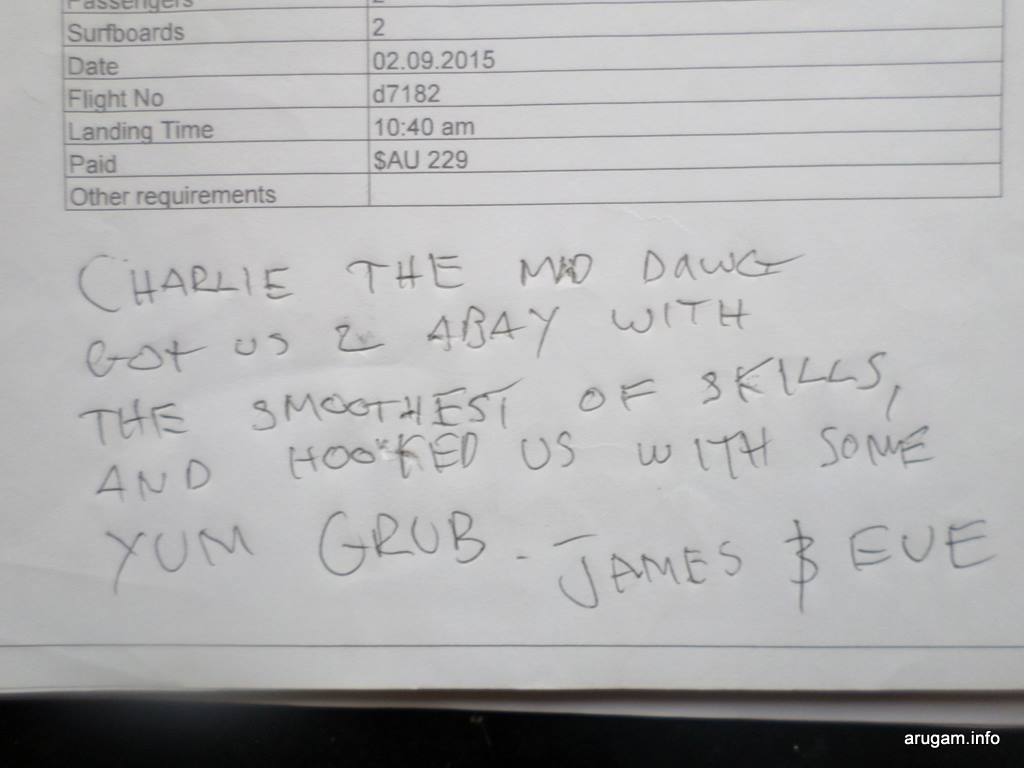 Passengers 2
Surfboards 2
Date 02.09.2015
Flight No d7182
Landing Time 10:40 am
Paid $AU 229
Other requirements
CHARLIE THE MAD DAWG
GOT US 2 ABAY WITH
THE SMOOTHEST OF SKILLS,
AND HOOKED US WITH SOME
YUM GRUB. JAMES & EVE
arugam.info